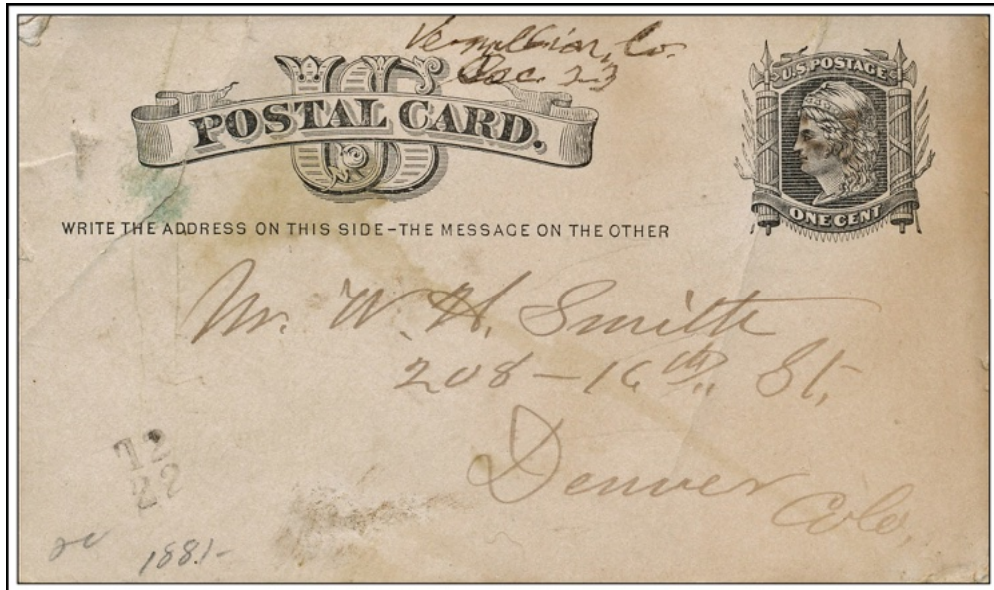 Vermillion, Co.
Dec. 23
US
POSTAL CARD.
U.S. POSTAGE
ONE CENT
WRITE THE ADDRESS ON THIS SIDE-THE MESSAGE ON THE OTHER
Mr. W. H. Smith
208-16th St,
Denver
Colo,
1881-